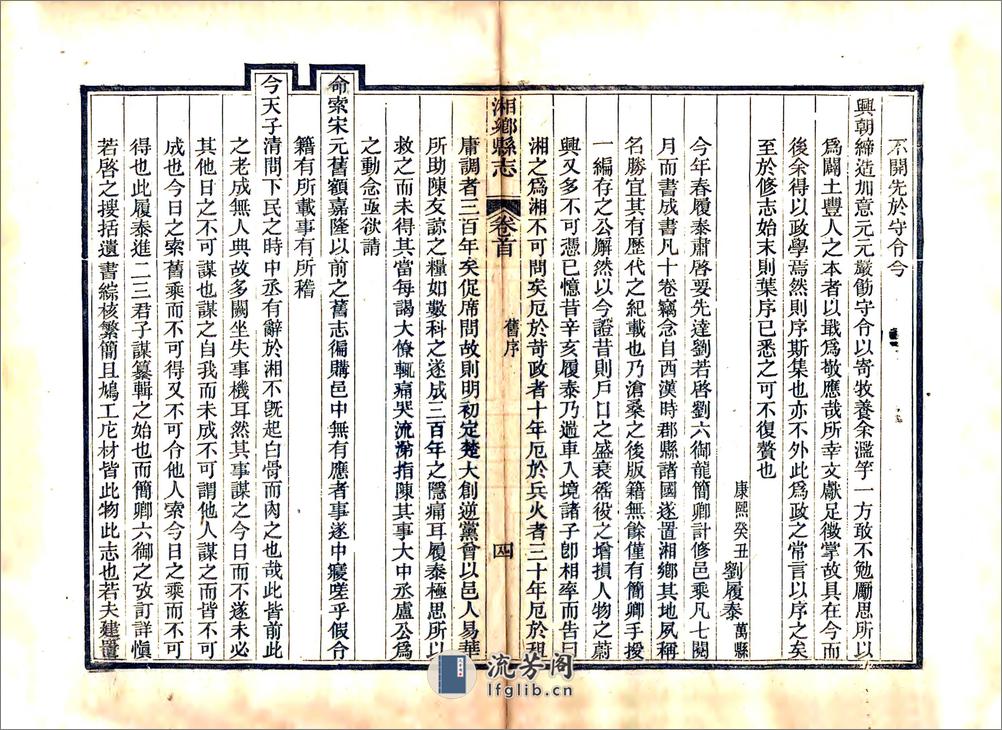 不開先於守令今
興朝締造加意元元嚴飭守令以崇牧養余濫竽一方敢不勉勵思所以
爲闢土豐人之本者以戢爲敬應哉所幸文獻足徵掌故具在今而
後余得以政學焉然則序斯集也亦不外此爲政之常言以序之矣
至於修志始末則葉序已悉之可不復贅也
康熙癸丑 劉履泰 萬縣
今年春履泰肅啓要先達劉若啓劉六御龍簡卿計修邑乘凡七閱
月而書成書凡十卷竊念自西漢時郡縣諸國遂置湘鄉其地夙稱
名勝宜其有歷代之紀載也乃滄桑之後版籍無餘僅有簡卿手授
一編存之公廨然以今證昔則戶口之盛衰徭役之增損人物之蔚
興又多不可憑已憶昔辛亥履泰乃過車入境諸子卽相率而告曰
湘之爲湘不可問矣厄於苛政者十年厄於兵火者三十年厄於租
湘鄉縣志 卷首 舊序 四
庸調者三百年矣促席問故則明初定楚大創逆黨會以邑人易華
所助陳友諒之糧如數科之遂成三百年之隱痛耳履泰極思所以
救之而未得其當每謁大僚輒痛哭流涕指陳其事大中丞盧公爲
之動念亟欲請
命索宋元舊額嘉隆以前之舊志徧購邑中無有應者事遂中寢嗟乎假令
籍有所載事有所稽
今天子清問下民之時中丞有辭於湘不旣起白骨而肉之也哉此皆前此
之老成無人典故多闕坐失事機耳然其事謀之今日而不遂未必
其他日之不可謀也謀之自我而未成不可謂他人謀之而皆不可
成也今日之索舊乘而不可得又不可令他人索今日之乘而不可
得也此履泰進二三君子謀纂輯之始也而簡卿六御之攷訂詳愼
若啓之搜括遺書綜核繁簡且鳩工庀材皆此物此志也若夫建置
流芳閣
lfglib.cn